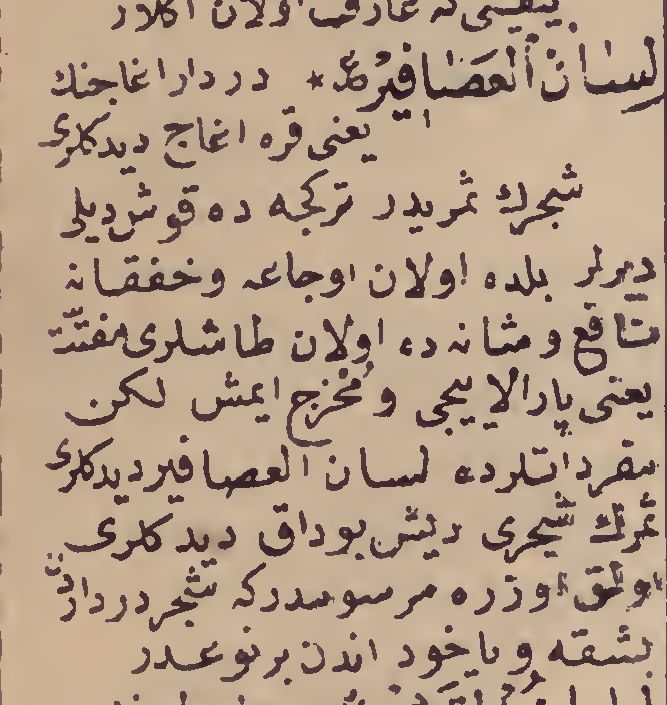 اولان اكلار
لسان العصافير ع * دردار اغاجنك
يعنى قره اغاج ديدكلرى
شجرك ثمريدر تركجه ده قوش ديلى
ديرلر بلده اولان اوجاعه وخفقانه
نافع و مثانه ده اولان طاشلرى مفتّت
يعنى پارالاييجى و مُخرج ايمش لكن
مفرداتلرده لسان العصافير ديدكلرى
ثمرك شجرى ديش بوداق ديدكلرى
اولمق اوزره مرسومدركه شجر درداردن
بشقه و ياخود اندن بر نوعدر